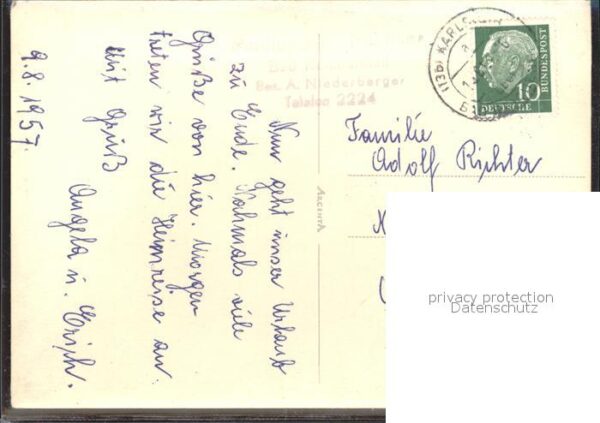 9.8.1957.
Nun geht unser Urlaub
zu Ende. Nochmals viele
Grüße von hier. Morgen
treten wir die Heimreise an.
Mit Gruß
Angela u. Erich.
Bes. A. Niederberger
Telefon 2224
ARGENTA
KARLS
10
DEUTSCHE
BUNDESPOST
Familie
Adolf Richter
privacy protection
Datenschutz